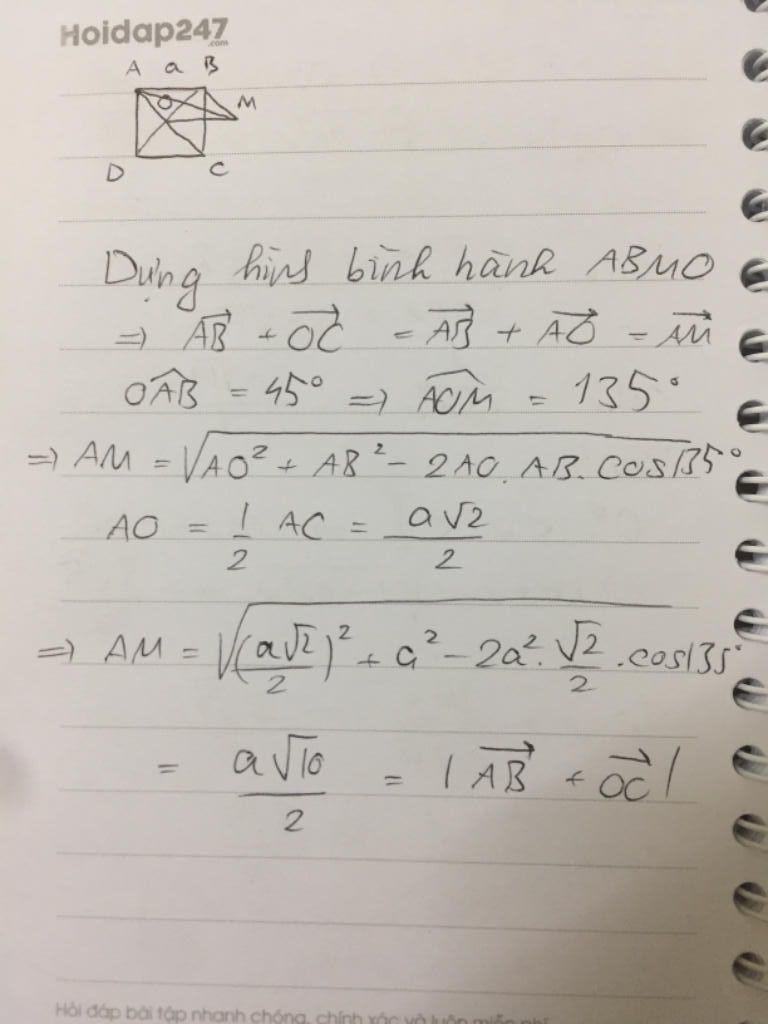 Hoidap247
.com
A a B
O M
D C
Dựng hình bình hành ABMO
=> \overrightarrow{AB} + \overrightarrow{OC} = \overrightarrow{AB} + \overrightarrow{AO} = \overrightarrow{AM}
\widehat{OAB} = 45° => \widehat{AOM} = 135°
=> AM = √(AO² + AB² - 2AO.AB.cos135°)
AO = 1/2 AC = a√2/2
=> AM = √((a√2/2)² + a² - 2a².√2/2.cos135°)
= a√10/2 = |\overrightarrow{AB} + \overrightarrow{OC}|
Hỏi đáp bài tập nhanh chóng, chính xác và luôn miễn phí